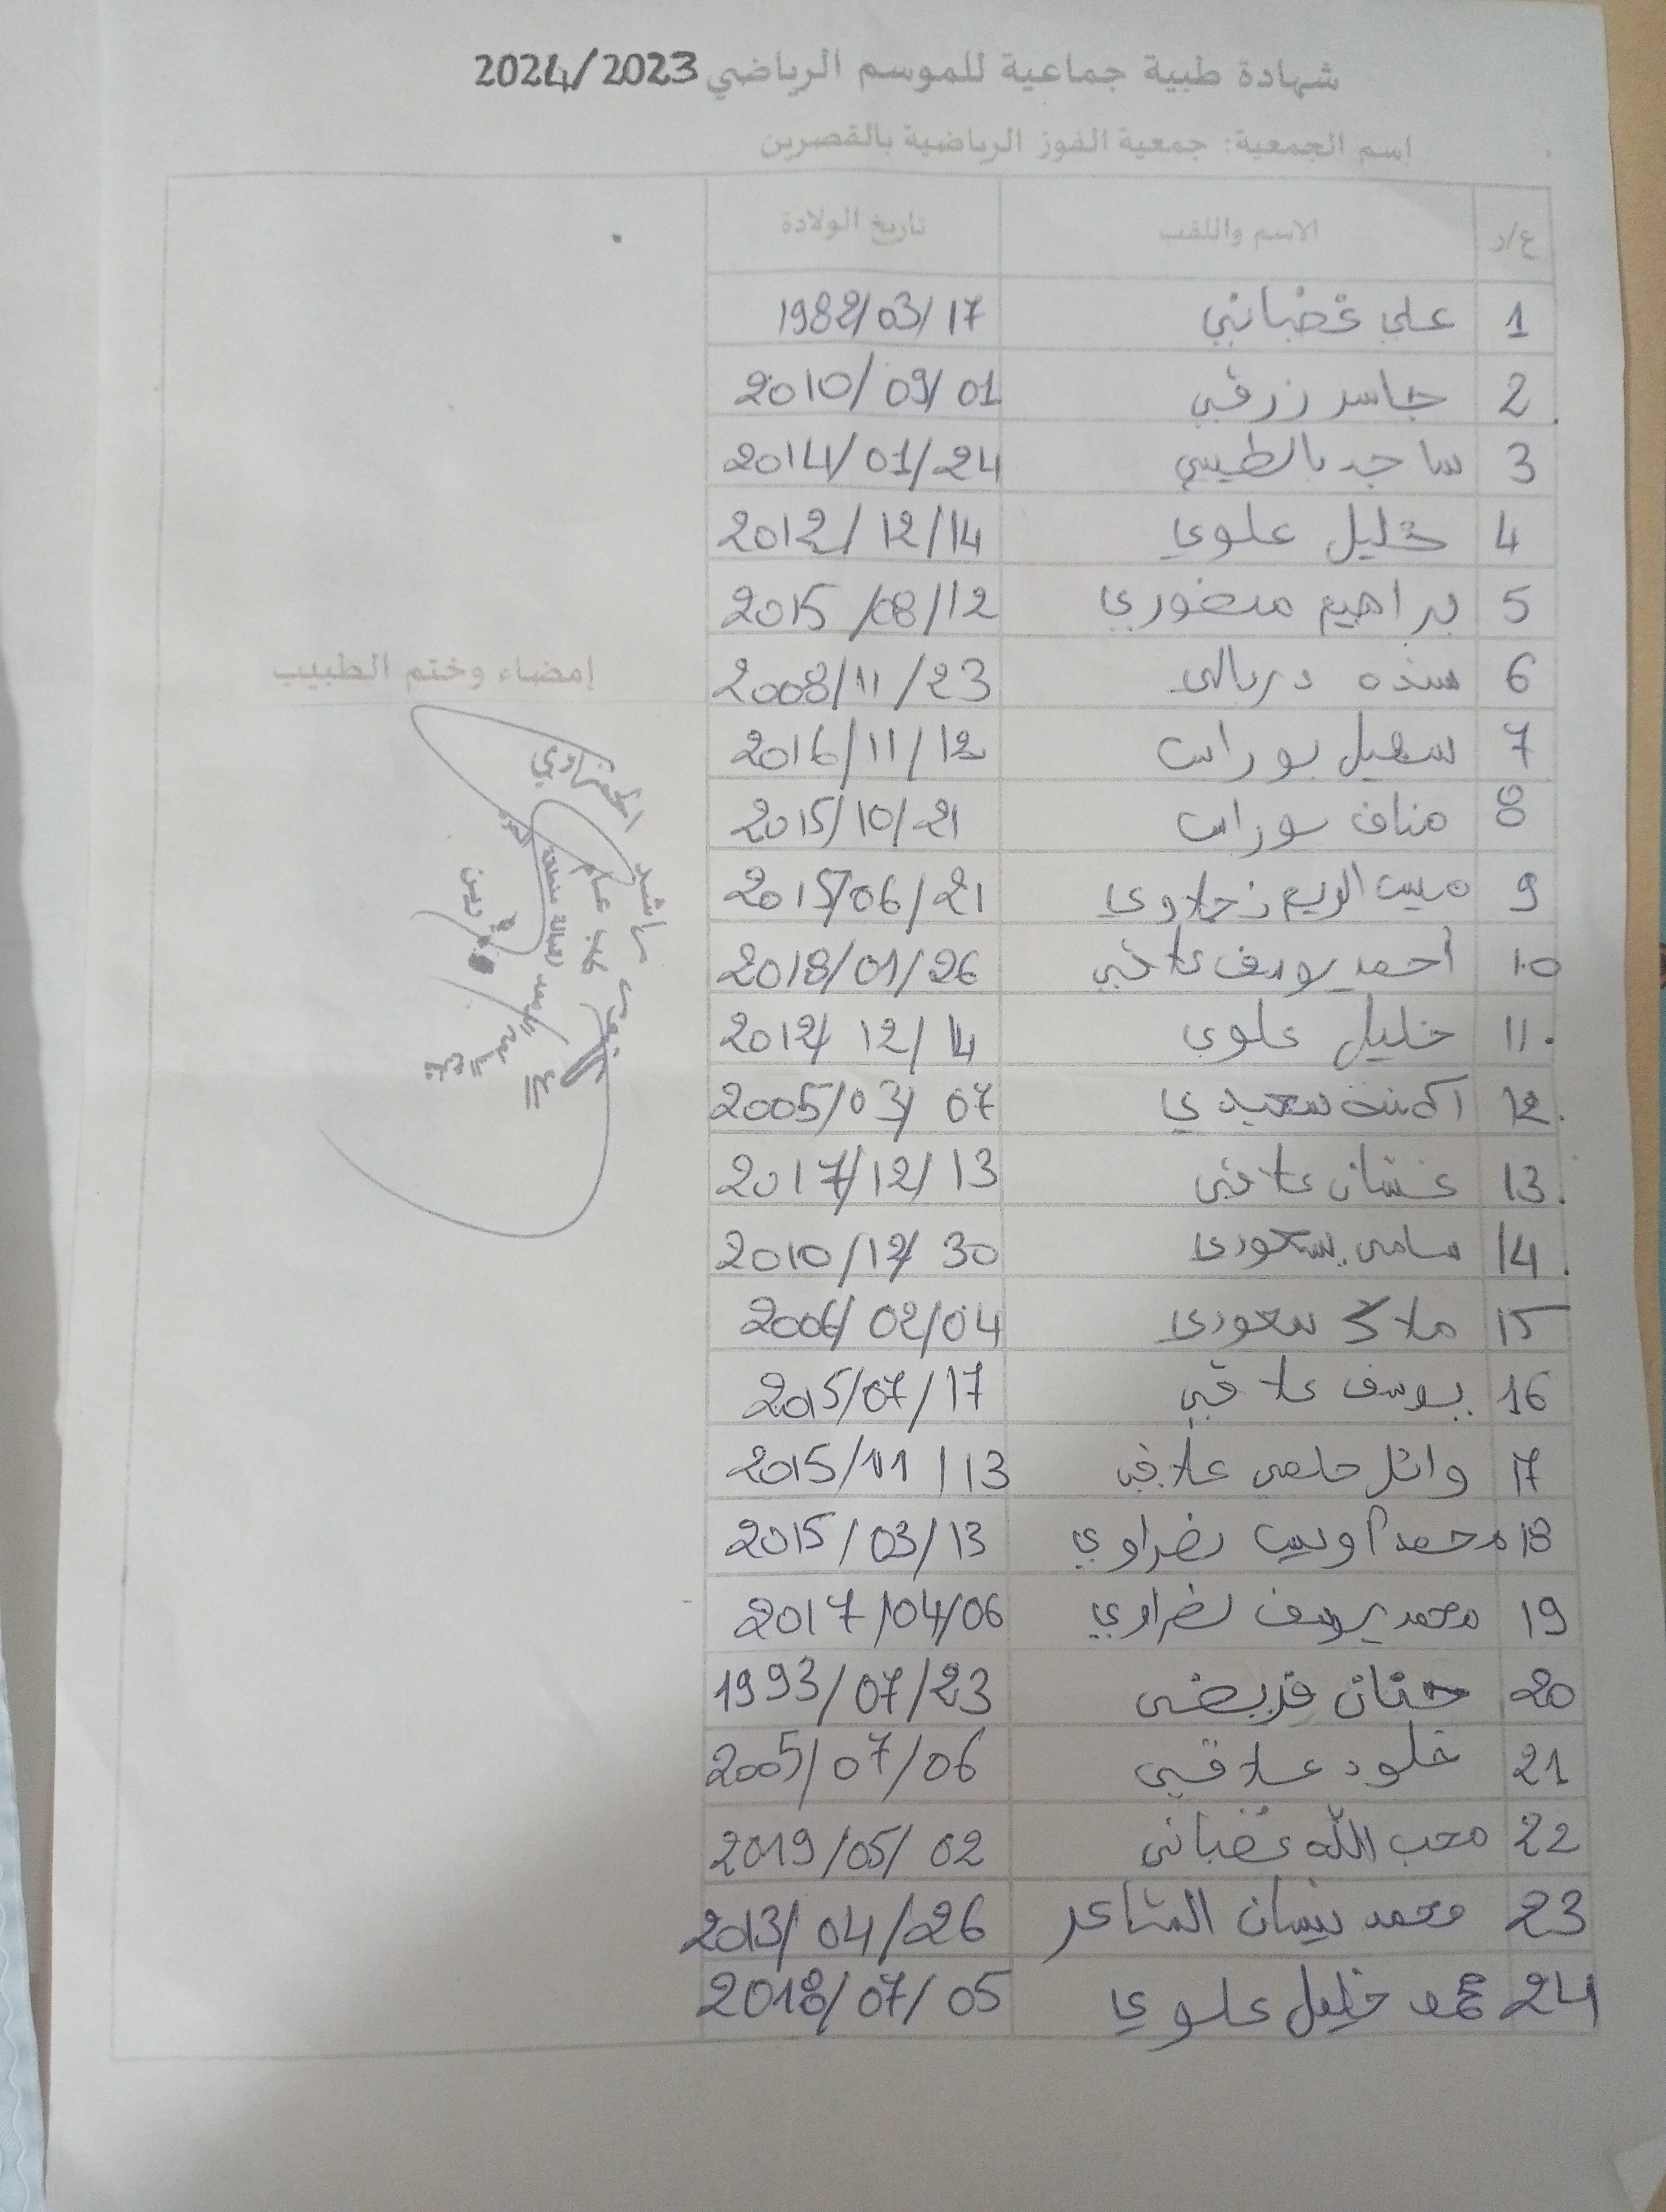 شهادة طبية جماعية للموسم الرياضي 2024/2023
إسم الجمعية: جمعية الفوز الرياضية بالقصرين
ع/ر الاسم واللقب تاريخ الولادة
1 علي غضباني 1982/03/17
2 جاسر زرقي 2010/09/01
3 ساجد بالطيبي 2014/01/24
4 خليل علوي 2012/12/14
5 براهيم منصوري 2015/08/12
6 دربالي 2008/11/23
إمضاء وختم الطبيب
7 سهيل بوراس 2016/11/12
8 مناف بوراس 2015/10/21
9 2015/06/21
10 أحمد يوسف علاقي 2018/01/26
11 خليل علوي 2012/12/14
12 سعيدي 2005/03/07
13 غسان علاقي 2017/12/13
14 سامي 2010/12/30
15 ملاك 2006/02/04
16 يوسف علاقي 2015/07/17
17 وائل حلمي علاقي 2015/11/13
18 محمد أويس نصراوي 2015/03/13
19 محمد يوسف نصراوي 2017/04/06
20 حنان 1993/07/23
21 خلود علاقي 2005/07/06
22 محب الله غضباني 2019/05/02
23 محمد نيسان الشاعر 2013/04/26
24 محمد خليل علوي 2018/07/05